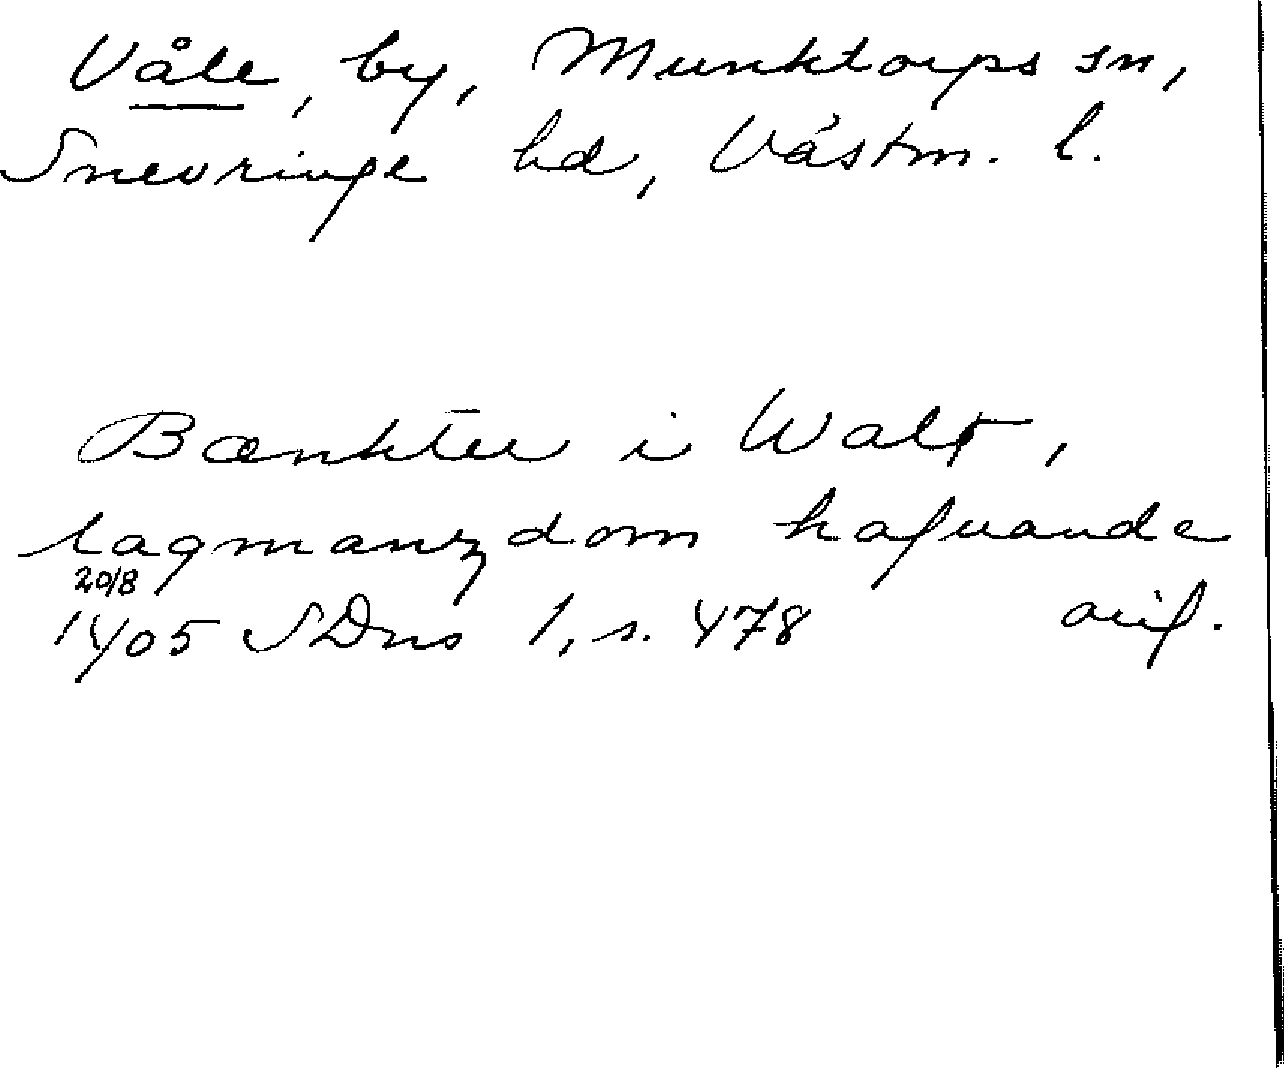 Våle, by, Munktorps sn,
Snevringe hd, Västm. l.
Bænkter i Wale,
lagmanzdom hafuande
20/8
1405 SDns 1, s. 478 avif.